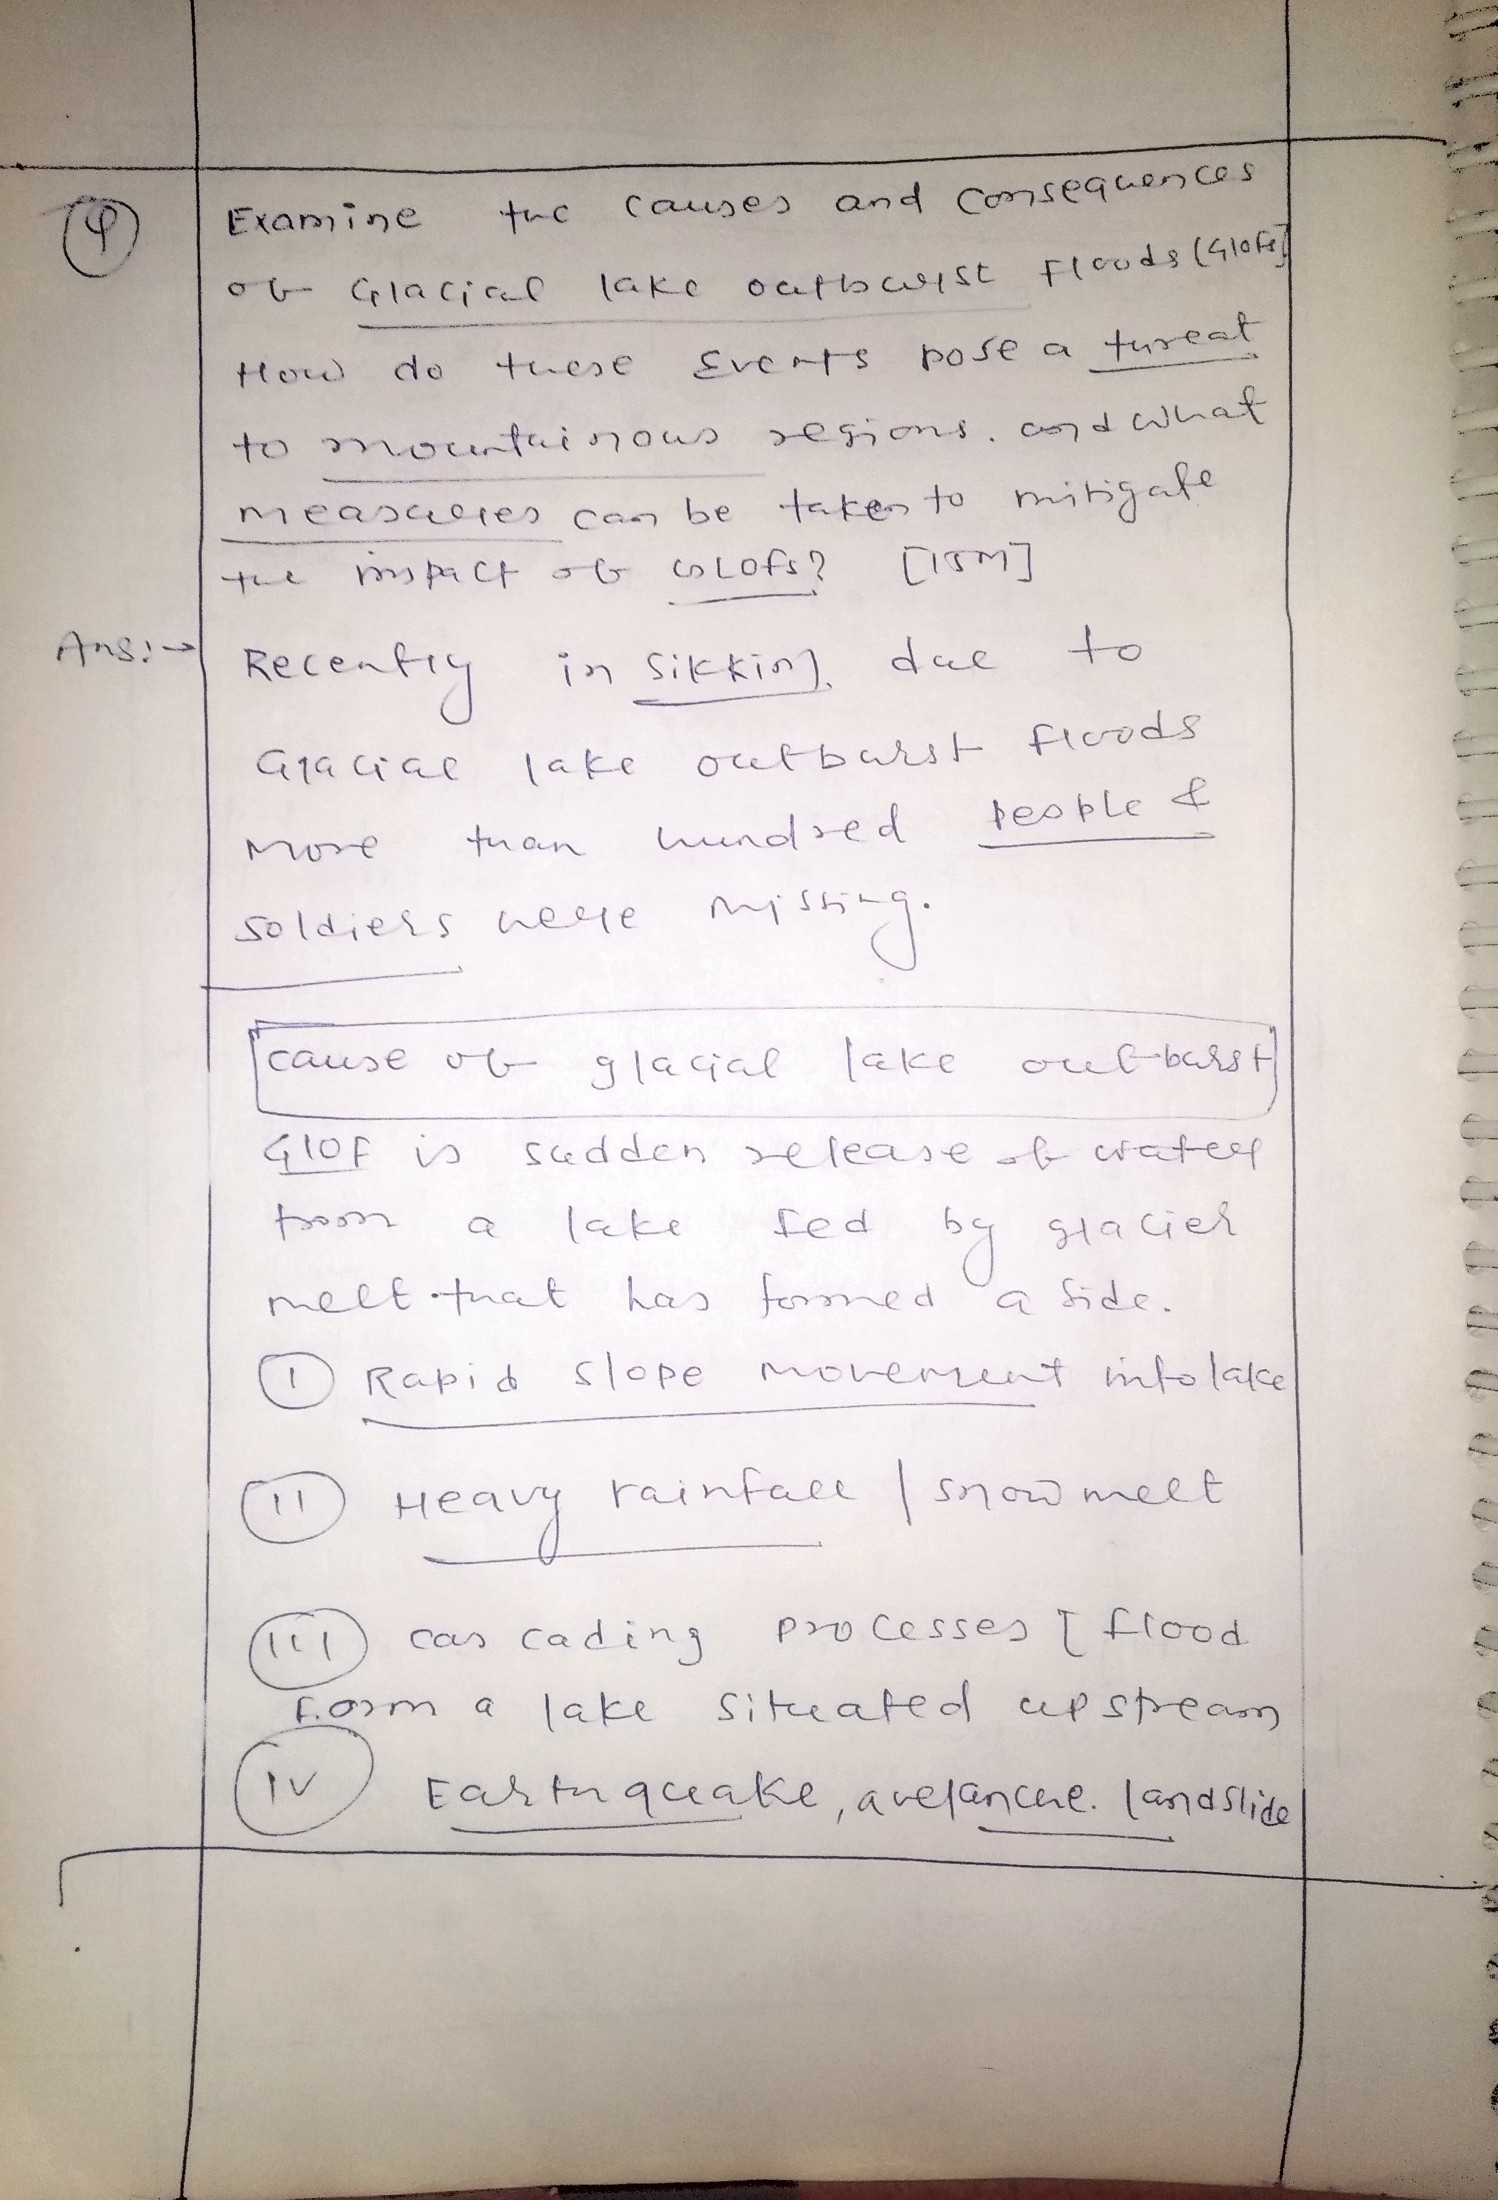 Q
Examine the causes and consequences
of Glacial lake outburst floods (GlOFs)
How do these Events pose a threat
to mountainous regions. and what
measures can be taken to mitigate
the impact of GLOFs? [15M]
Ans:→
Recently in Sikkim, due to
Glacial lake outburst floods
More than hundred people &
soldiers were missing.
cause of glacial lake outburst
GlOF is sudden release of water
from a lake fed by glacier
melt that has formed a side.
(I) Rapid slope movement into lake
(II) Heavy rainfall / snowmelt
(III) cascading processes [flood
form a lake situated upstream
(IV) Earthquake, avelanche. landslide